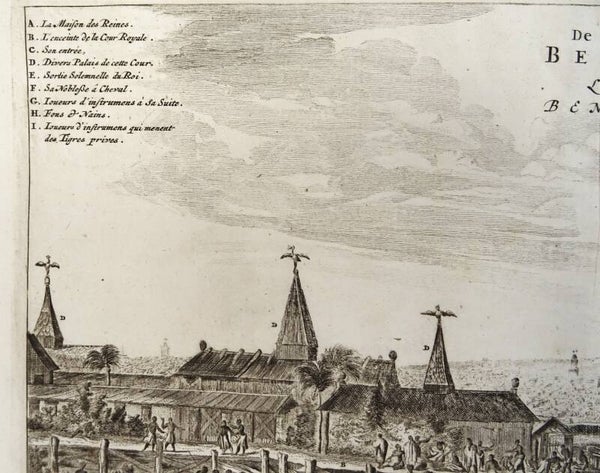 A. La Maiſon des Reines.
B. L'enceinte de la Cour Royale.
C. Son entrée.
D. Divers Palais de cette Cour.
E. Sortie Solemnelle du Roi.
F. Sa Nobleſſe à Cheval.
G. Ioueurs d'inſtrumens à Sa Suite.
H. Fous & Nains.
I. Ioueurs d'inſtrumens qui menent
des Tigres prives.
De
BE
L
BEN
D
D
D
B